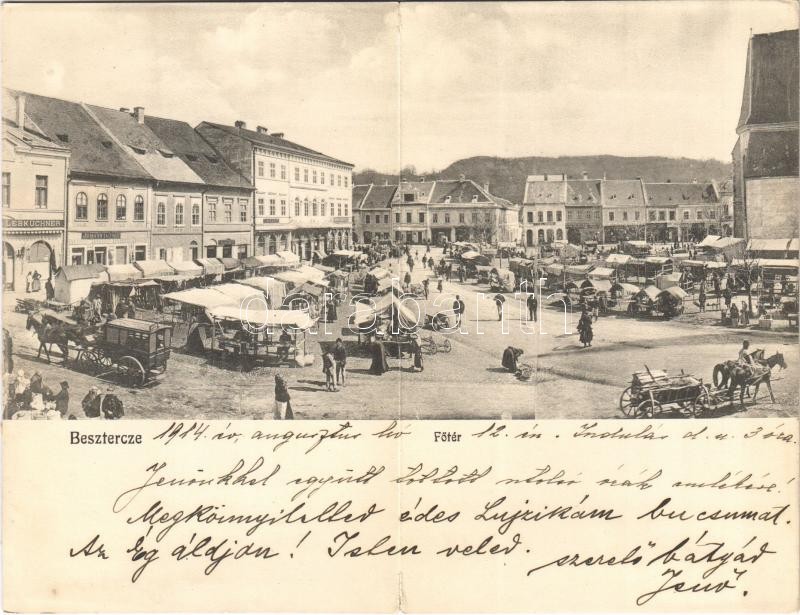 LEBKÜCHNER
Besztercze 1914. év, augusztus hó Főtér 12. én. Indulás d. u. 3 óra.
Jenőnkkel együtt töltött utolsó órák emlékére!
Megkönnyitetted édes Lujzikám bucsumat.
Az Ég áldjon! Isten veled. szerető bátyád
Jenő.